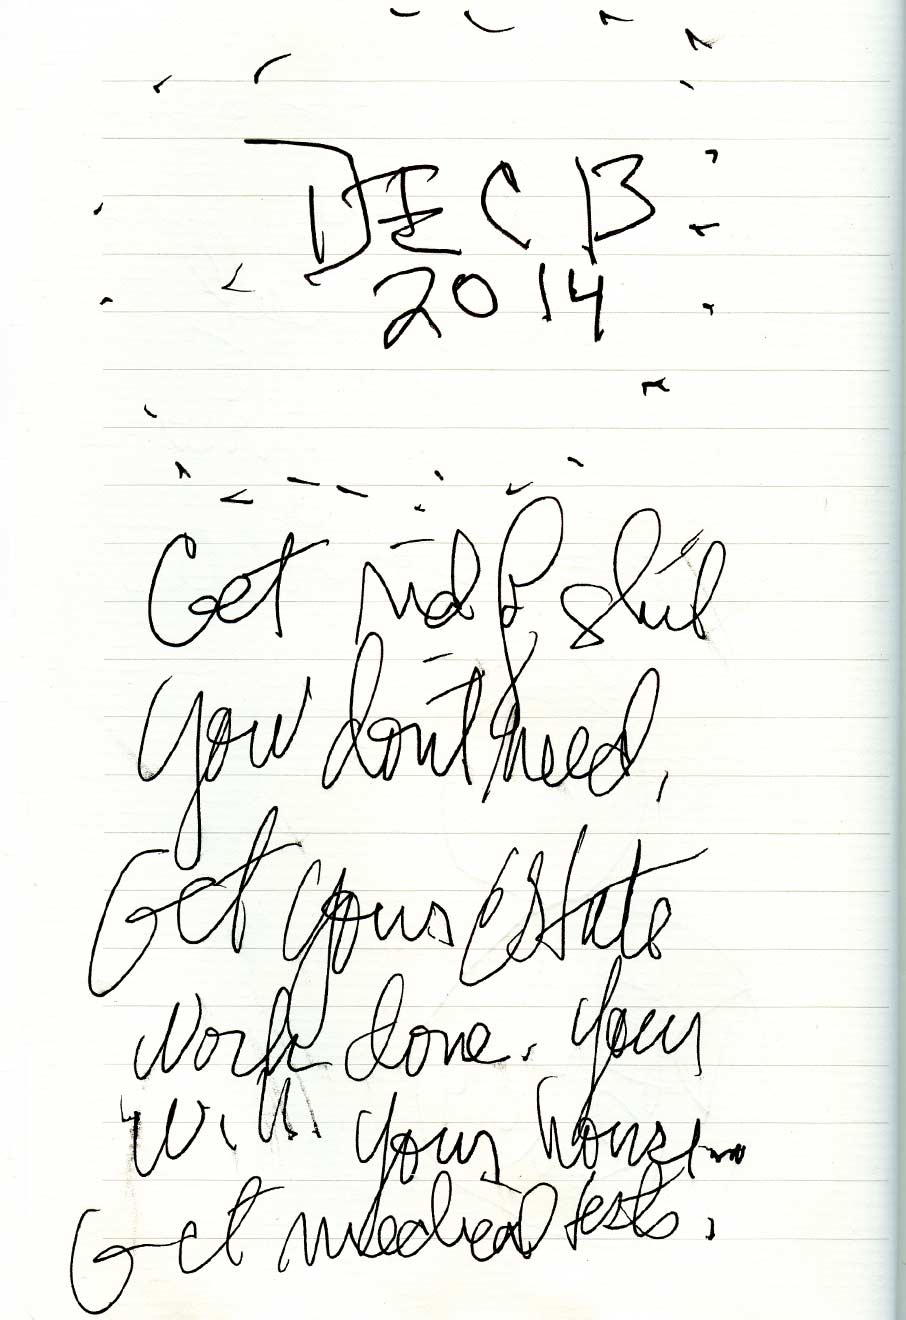 DEC 13
2014
Get rid of shit
you don't need,
Get your estate
work done. Your
Will. Your house...
Get medical tests.